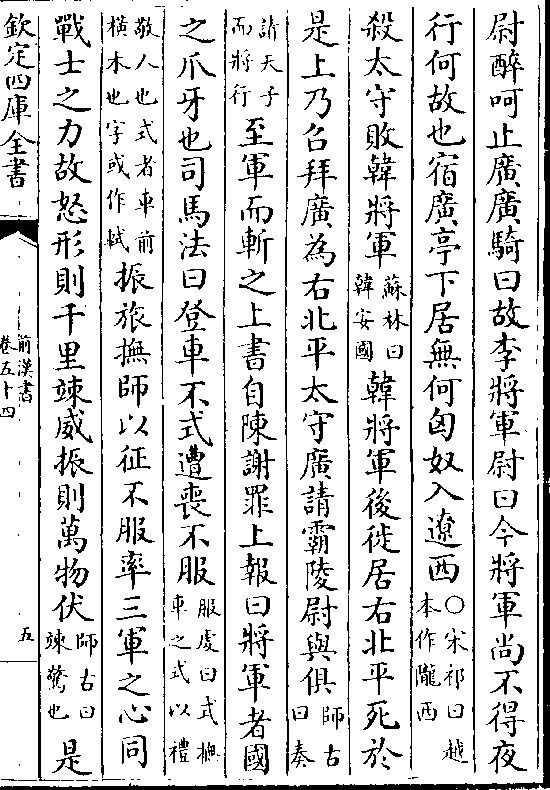 尉醉呵止廣廣騎曰故李將軍尉曰今將軍尚不得夜
行何故也宿廣亭下居無何匈奴入遼西○宋祁曰越本作隴西
殺太守敗韓將軍蘇林曰韓安國韓將軍後徙居右北平死於
是上乃召拜廣為右北平太守廣請霸陵尉與俱師古曰奏
請天子而將行至軍而斬之上書自陳謝罪上報曰將軍者國
之爪牙也司馬法曰登車不式遭喪不服服虔曰式撫車之式以禮
敬人也式者車前橫木也字或作軾振旅撫師以征不服率三軍之心同
戰士之力故怒形則千里竦威振則萬物伏師古曰竦驚也是
欽定四庫全書
前漢書
卷五十四
五